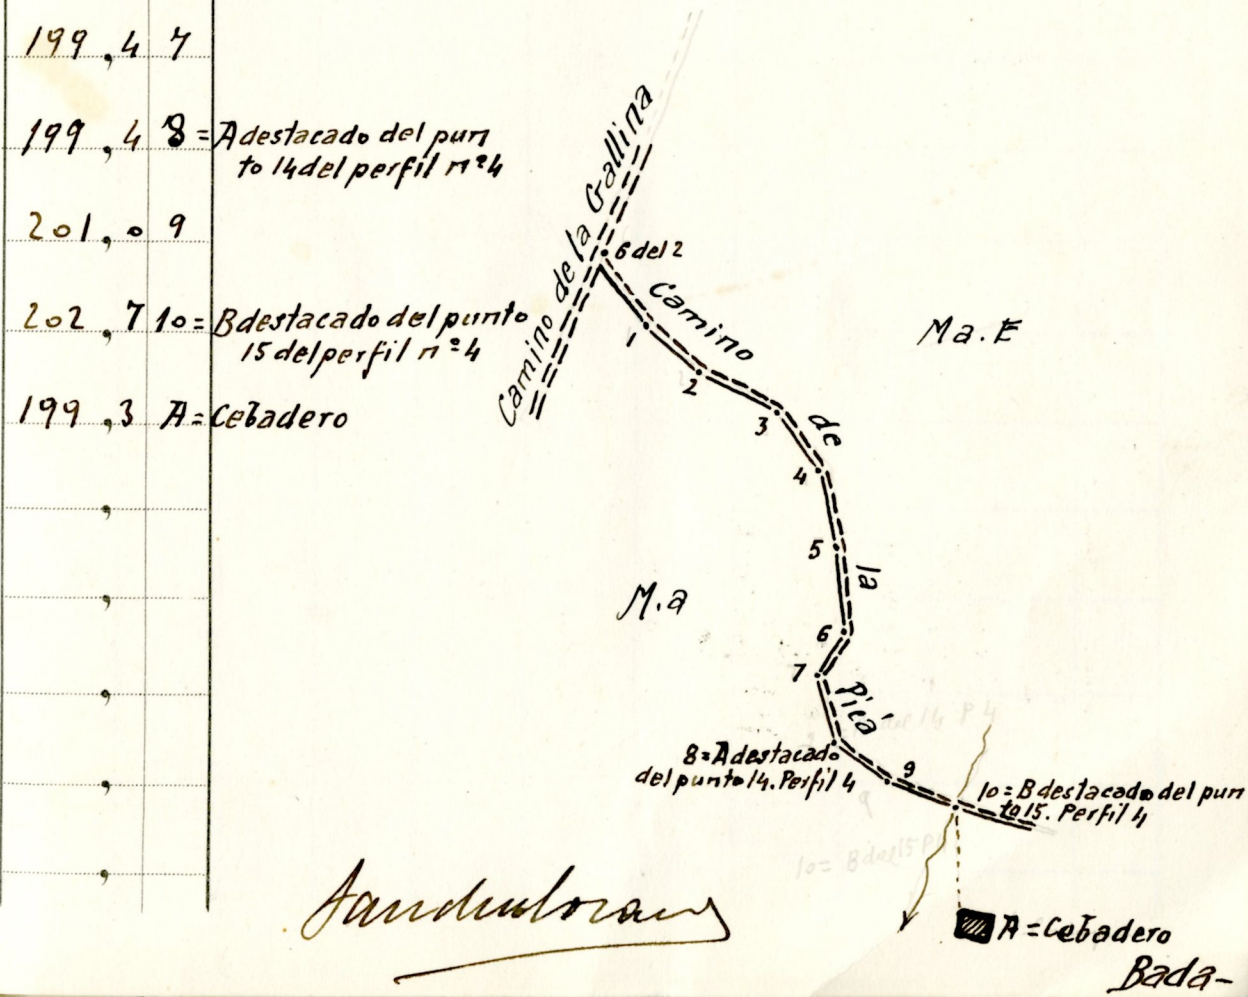 199,4 7
199,4 8=A destacado del pun
to 14 del perfil nº 4
201,0 9
202,7 10=B destacado del punto
15 del perfil nº 4
199,3 A=Cebadero
Camino de la Gallina
6 del 2
Camino de la Picá
1
2
3
4
5
6
7
Ma.E
M.a
8=A destacado
del punto 14. Perfil 4
9
10=B destacado del pun
to 15. Perfil 4
del 14 P 4
9
10= B del 15 P
A=Cebadero
Bada-